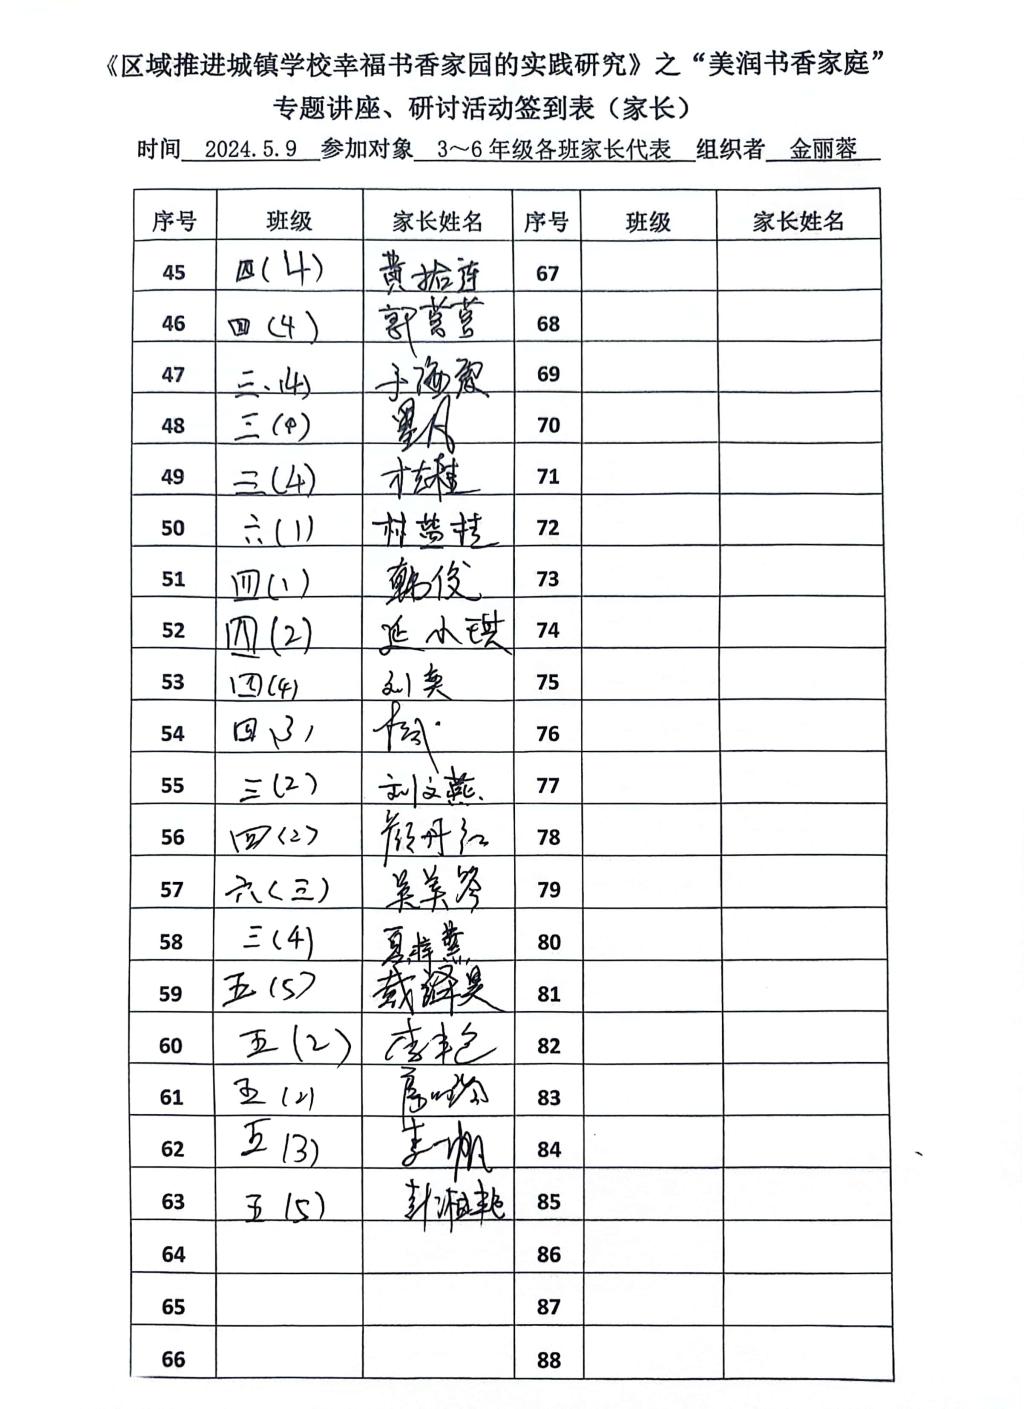 《区域推进城镇学校幸福书香家园的实践研究》之“美润书香家庭”
专题讲座、研讨活动签到表（家长）
时间 2024.5.9 参加对象 3～6年级各班家长代表 组织者 金丽蓉
序号 班级 家长姓名 序号 班级 家长姓名
45 四(4) 黄拾莲 67
46 四(4) 郭莺莺 68
47 三(4) 于海霞 69
48 三(4) 70
49 三(4) 71
50 六(1) 林梦桂 72
51 四(1) 韩俊 73
52 四(2) 延小琪 74
53 四(4) 刘英 75
54 四(3) 76
55 三(2) 刘文燕 77
56 四(2) 颜丹红 78
57 六(三) 吴美琴 79
58 三(4) 夏梓燕 80
59 五(5) 戴泽昊 81
60 五(2) 李艳 82
61 五(2) 83
62 五(3) 李一帆 84
63 五(5) 彭湘艳 85
64 86
65 87
66 88